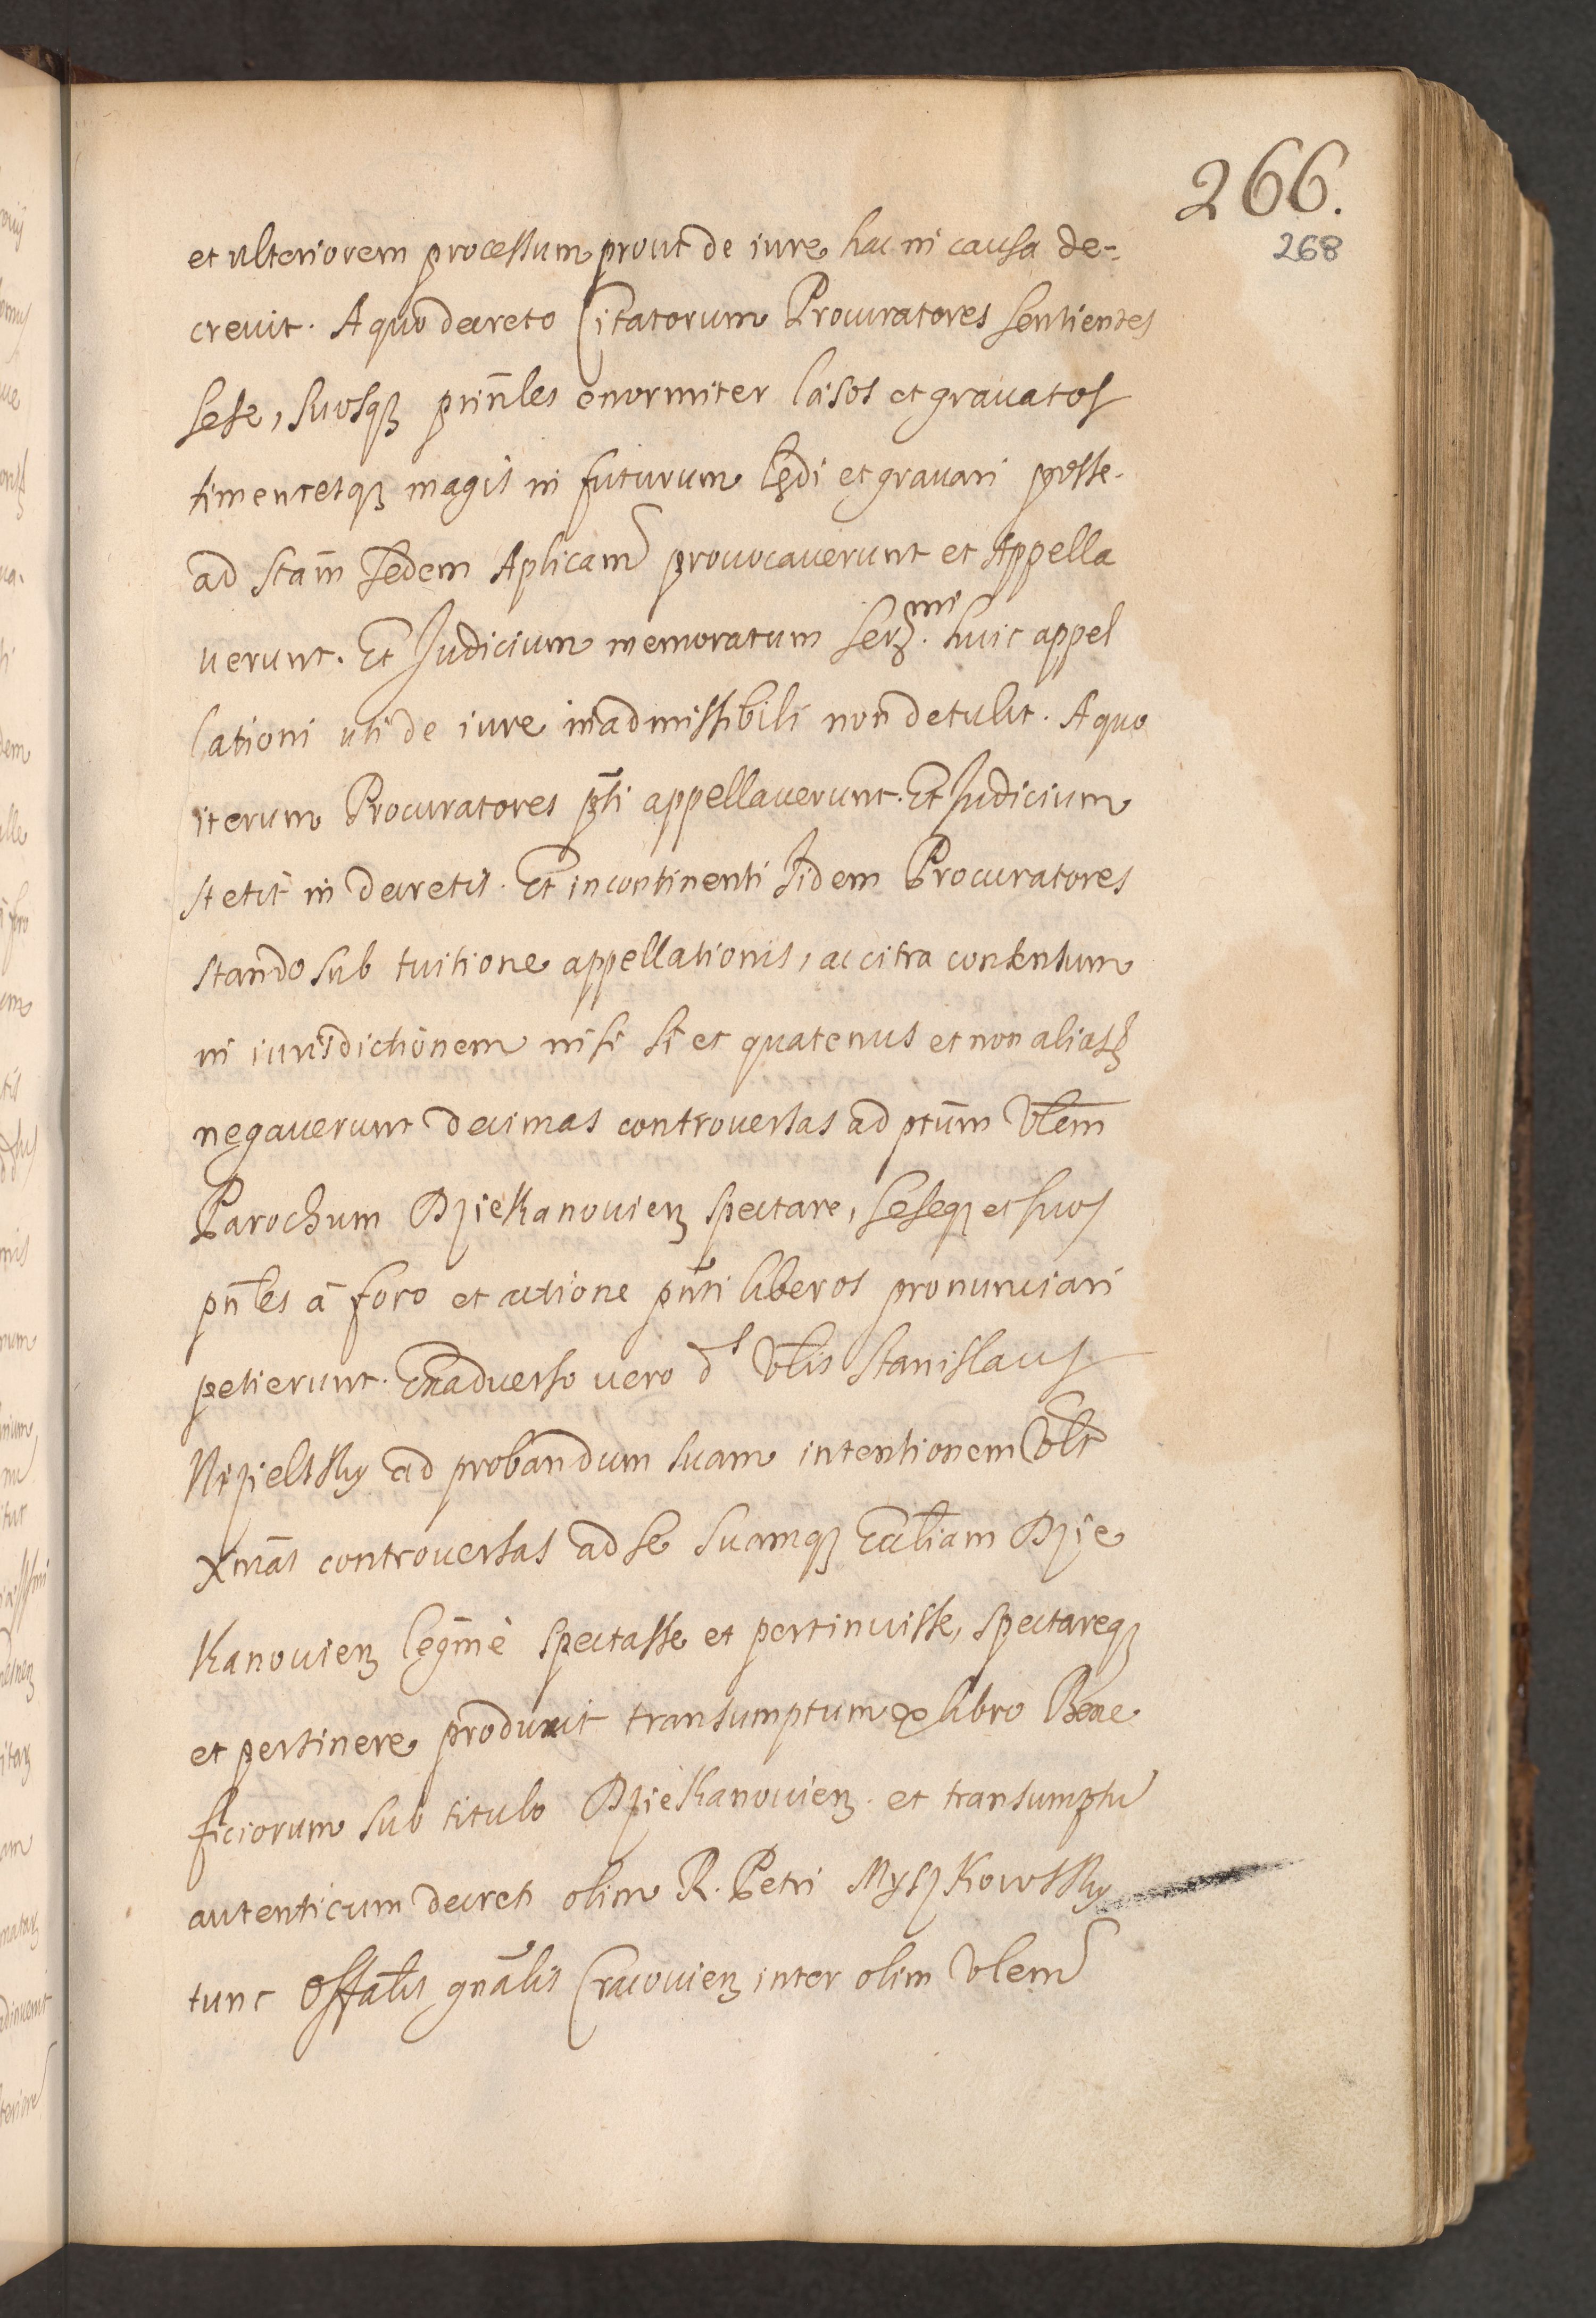 266.
268
et ulteriorem processum prout de iure hac in causa de-
crevit. A quo decreto Citatorum Procuratores sentientes
sese, suosq3 prinles enormiter laesos et gravatos
timentesq3 magis in futurum lędi et gravari posse.
ad Stam Sedem Aplicam provocaverunt et Appella
verunt. Et Judicium memoratum Sermi. huic appel
lationi uti de iure inadmissibili non detulit. A quo
iterum Procuratores pti appellaverunt. Et Judicium
stetit in decretis. Et incontinenti Iidem Procuratores
stando sub tuitione appellationis, ac citra consensum
in iurisdictionem nisi si et quatenus et non alias
negaverunt decimas controversas ad ptum Vlem
Parochum Dziekanovien spectare, seseq3 et suos
pnles à foro et actione pnti liberos pronunciari
petierunt. Ex adverso vero d Vlis Stanislaus
ad probandum suam intentionem Vlt
Xmas controversas ad se suamq3 Eccliam Dzie
Kanovien legme spectasse et pertinuisse, spectareq3
et pertinere produxit transumptum ex libro Bene
ficiorum sub titulo Dziekanovien. et transumptu
autenticum decreti olim R. Petri Myszkowsky
tunc Offalis gnalis Cracovien inter olim Vlem